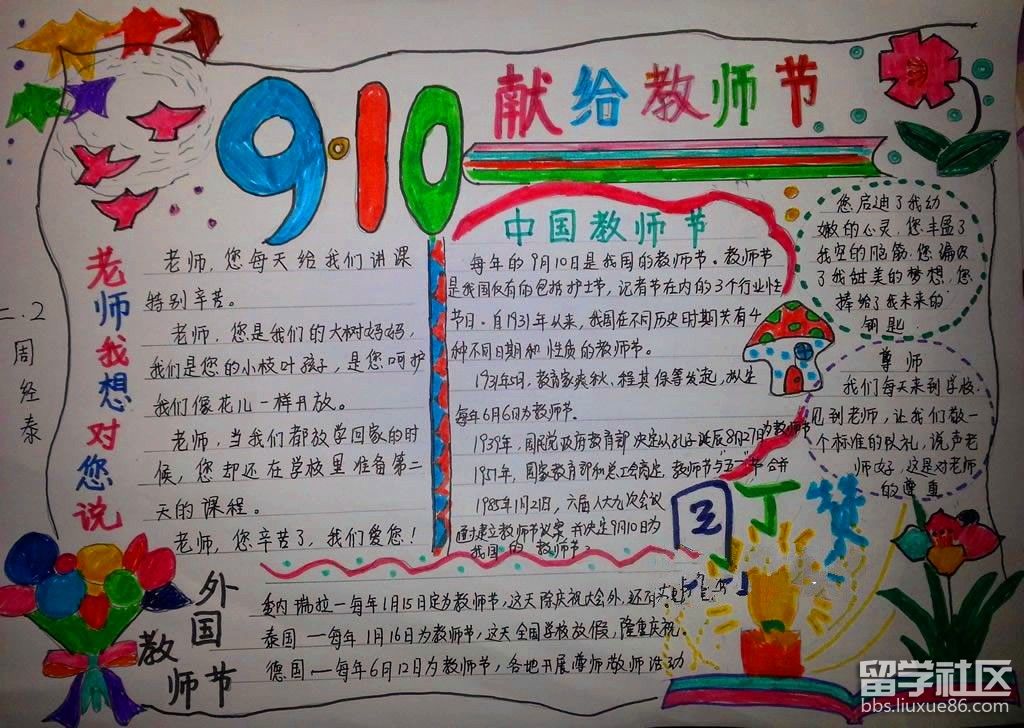 9·10
献给教师节
二.2
周经泰
老师我想对您说
老师,您每天给我们讲课
特别辛苦。
老师,您是我们的大树妈妈,
我们是您的小枝叶孩子,是您呵护
我们像花儿一样开放。
老师,当我们都放学回家的时
候,您却还在学校里准备第二
天的课程。
老师,您辛苦了,我们爱您!
中国教师节
每年的9月10日是我国的教师节。教师节
是我国仅有的包括护士节,记者节在内的3个行业性
节日。自1931年以来,我国在不同历史时期共有4
种不同日期和性质的教师节。
1931年5月,教育家爽秋、程其保等发起,拟定
每年6月6日为教师节。
1939年,国民党政府教育部决定以孔子诞辰8月27日为教师节
1951年,国家教育部和总工会商定,教师节与"五一"节合并
1985年1月21日,六届人大九次会议
通过建立教师节议案,并决定9月10日为
我国的教师节。
您启迪了我幼
嫩的心灵,您丰盈了
我空的脑筋,您编改
了我甜美的梦想,您
捧给了我未来的
钥匙.
尊师
我们每天来到学校,
见到老师,让我们敬一
个标准的队礼,说声老
师好,这是对老师
的尊重
园丁赞
外国
教师节
委内瑞拉—每年1月15日定为教师节,这天除庆祝大会外,还有
泰国—每年1月16日为教师节,这天全国学校放假,隆重庆祝.
德国—每年6月12日为教师节,各地开展尊师教师活动
留学社区
bbs.liuxue86.com